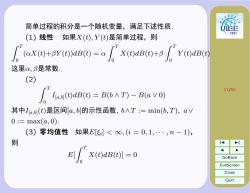 简单过程的积分是一个随机变量, 满足下述性质.
(1) 线性 如果X(t), Y(t)是简单过程, 则
∫₀ᵀ (αX(t)+βY(t))dB(t) = α ∫₀ᵀ X(t)dB(t)+β ∫₀ᵀ Y(t)dB(t)
这里α, β是常数.
(2)
∫₀ᵀ I_{[a,b]}(t)dB(t) = B(b∧T) − B(a∨0)
其中I_{[a,b]}(t)是区间[a, b]的示性函数, b∧T := min(b, T), a∨
0 := max(a, 0).
(3) 零均值性 如果E[ξᵢ] < ∞, (i = 0, 1, ··· , n − 1),
则
E[∫₀ᵀ X(t)dB(t)] = 0
UIBE
GoBack
FullScreen
Close
Quit